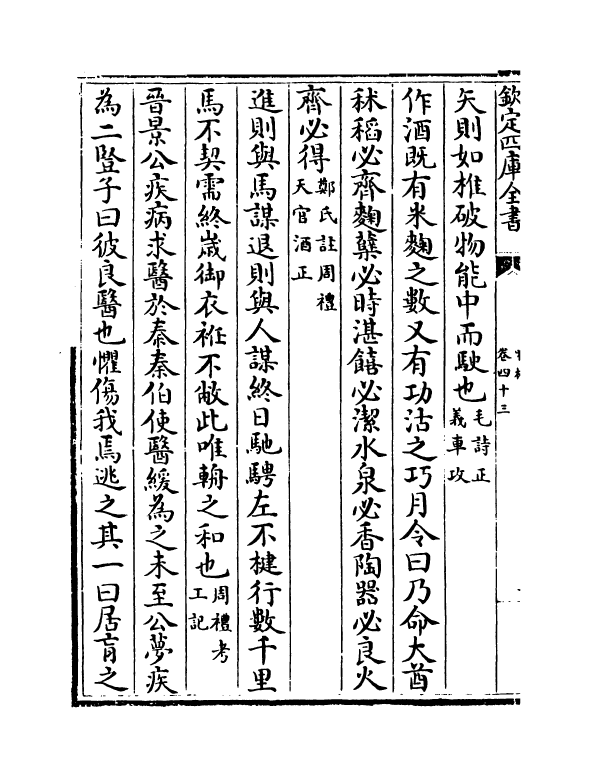 欽定四庫全書
卷四十三
矢則如椎破物能中而駛也毛詩正義車攻
作酒既有米麴之數又有功沽之巧月令曰乃命大酋
秫稻必齊麴糵必時湛饎必潔水泉必香陶器必良火
齊必得鄭氏註周禮天官酒正
進則與馬謀退則與人謀終日馳騁左不楗行數千里
馬不契需終嵗御衣袵不敝此唯輈之和也周禮考工記
晉景公疾病求醫於秦秦伯使醫緩為之未至公夢疾
為二豎子曰彼良醫也懼傷我焉逃之其一曰居肓之